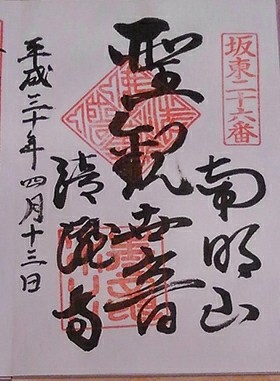 坂東二十六番
南明山
聖観世音
清瀧寺
平成三十年四月十三日